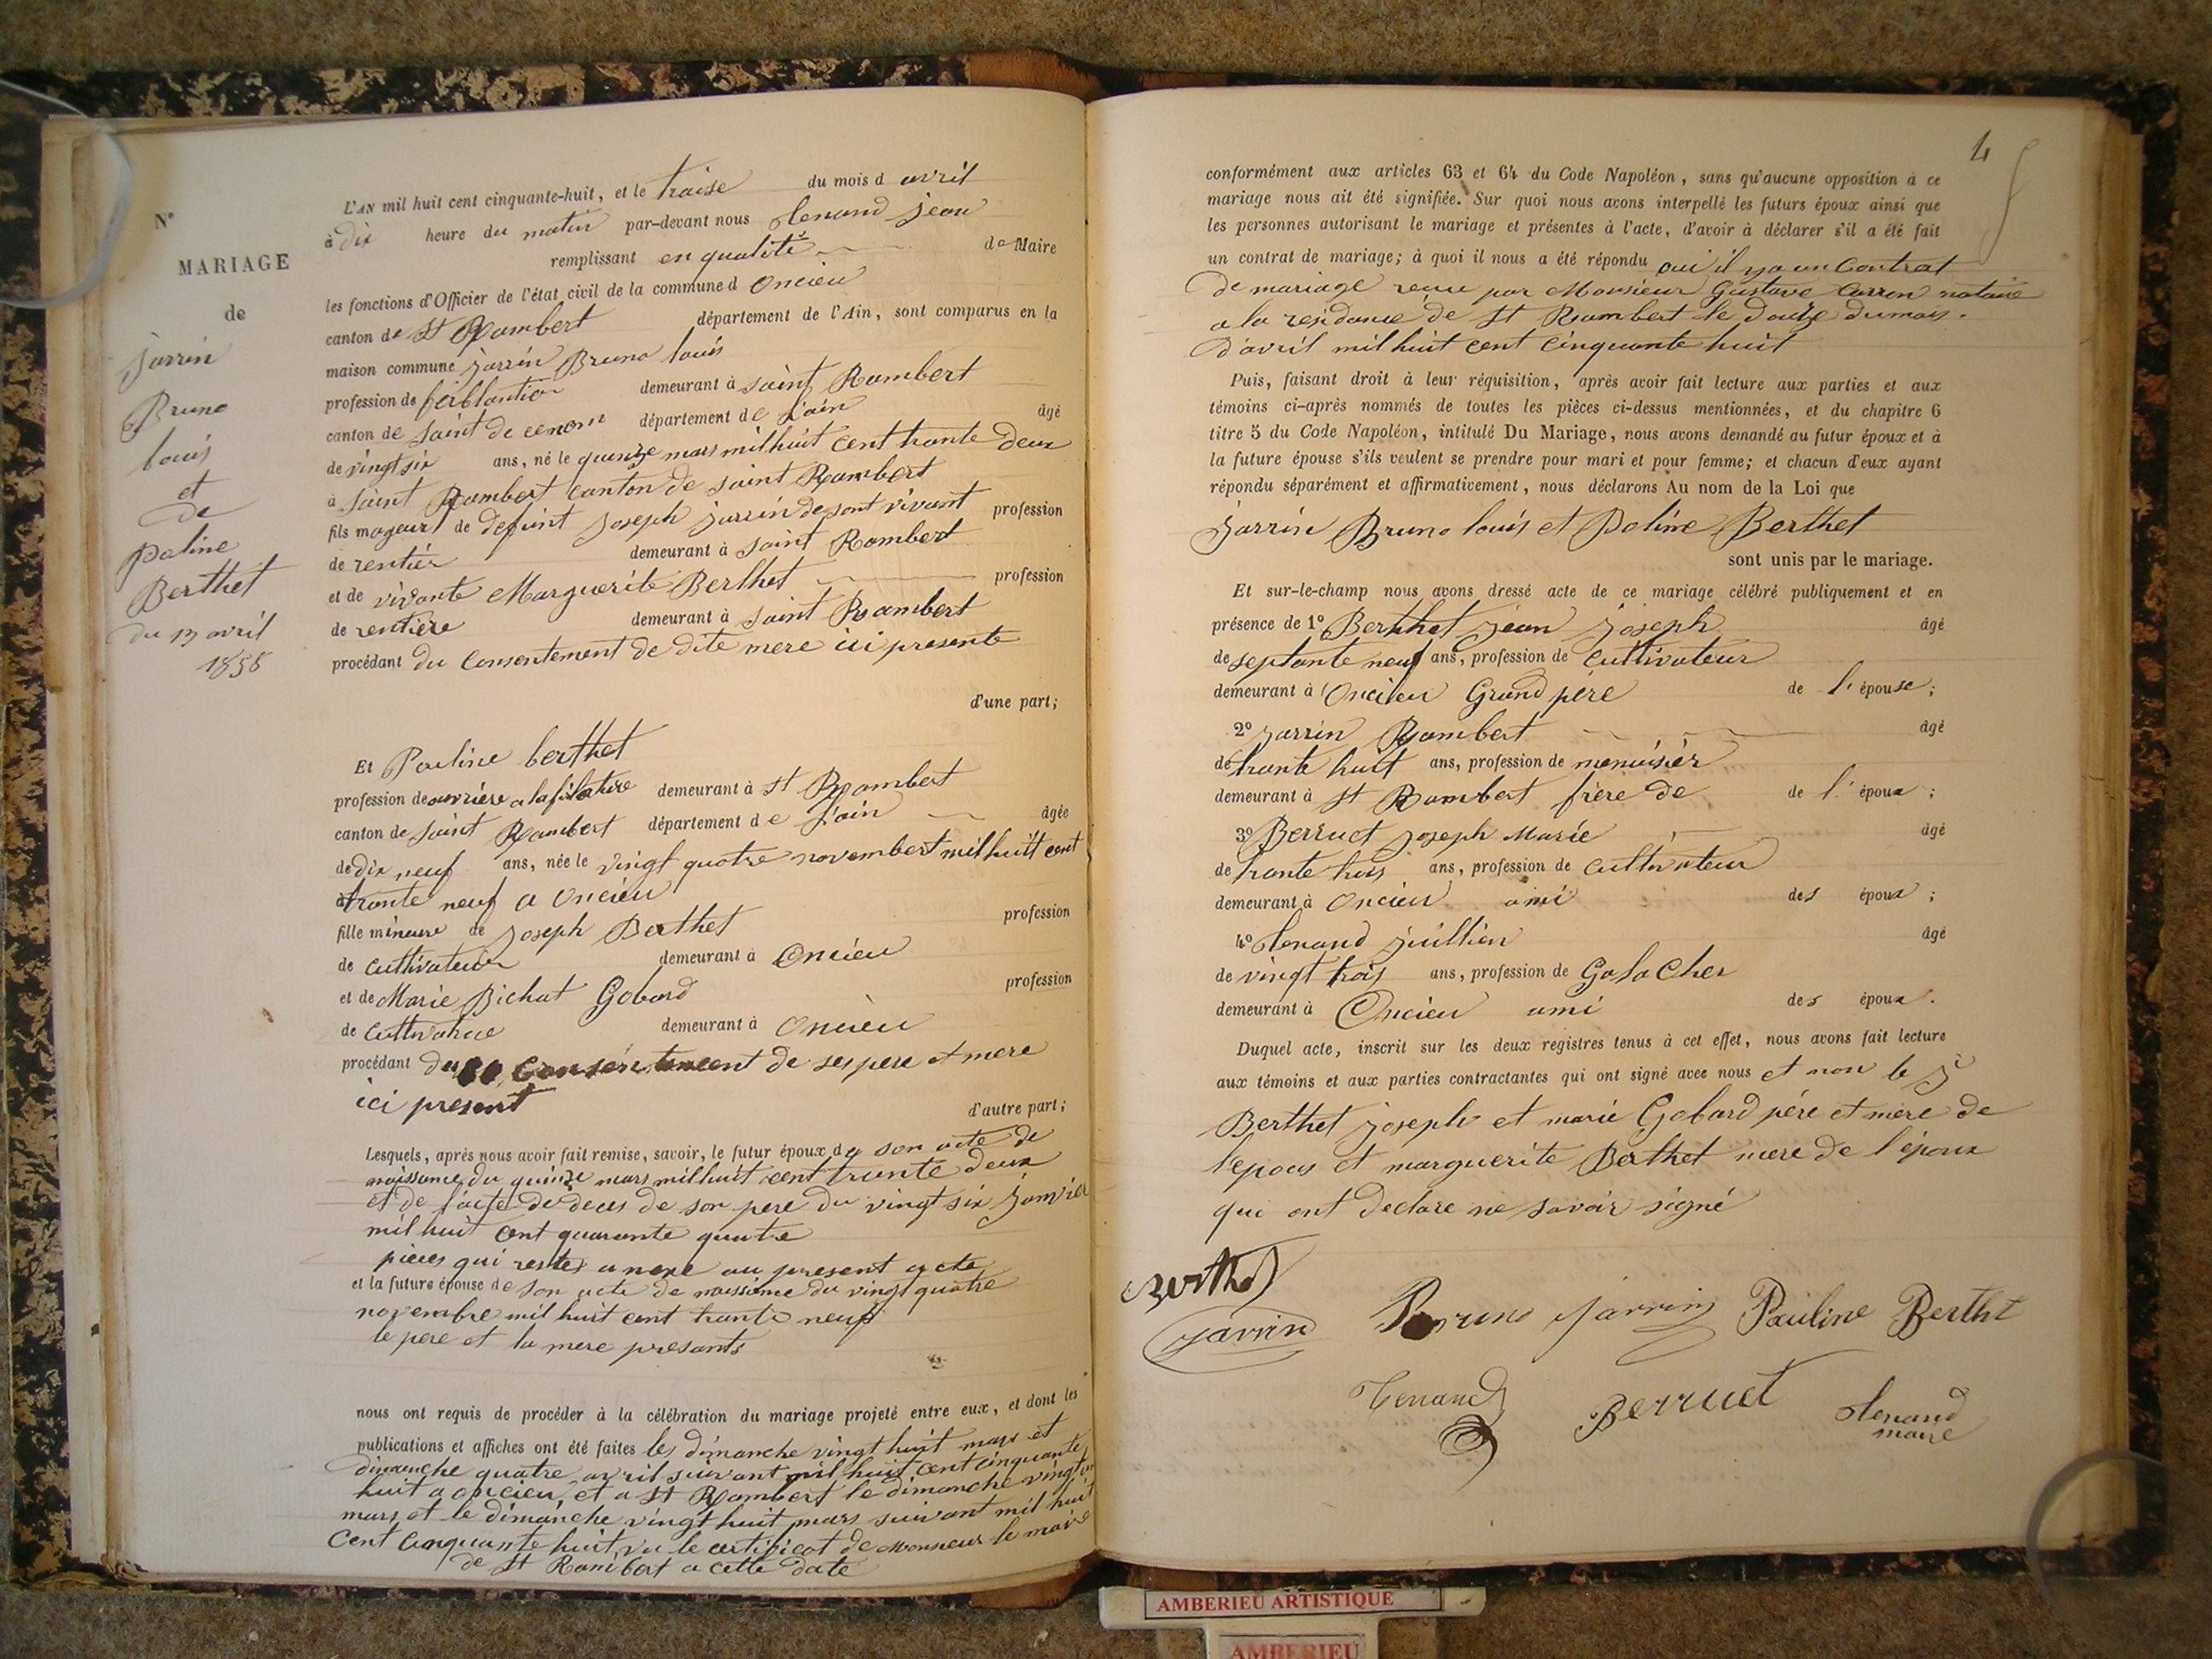 Nº
MARIAGE
de
jarrin
Bruno
louis
et
de
Poline
Berthet
du 13 avril
1858
L'AN mil huit cent cinquante-huit, et le traise du mois d avril
à dix heure du matin par-devant nous tenand jean
remplissant en qualité de Maire
les fonctions d'Officier de l'état civil de la commune d oncieu
canton de St Rambert département de l'Ain, sont comparus en la
maison commune jarrin Bruno louis
profession de ferblantier demeurant à saint Rambert
canton de saint de département de l'ain âgé
de vingt six ans, né le quinze mars mil huit cent trante deux
à saint Rambert canton de saint Rambert
fils majeur de defunt joseph jarrin de sont vivant profession
de rentier demeurant à saint Rambert
et de vivante Marguerite Berthet profession
de rentière demeurant à saint Rambert
procédant du consentement de dite mere ici presente
d'une part;
Et Pauline berthet
profession de ouvrière a la filature demeurant à St Rambert
canton de saint Rambert département de l'ain âgée
de dix neuf ans, née le vingt quatre novembert mil huit cent
trante neuf a oncieu
fille mineure de joseph Berthet profession
de cultivateur demeurant à oncieu
et de Marie Bichat Gobard profession
de cultivatrice demeurant à oncieu
procédant du consentement de ses pere et mere
ici present
d'autre part;
Lesquels, après nous avoir fait remise, savoir, le futur époux de son acte de
naissance du quinze mars mil huit cent trante deux
et de l'acte de deces de son pere du vingt six janvier
mil huit cent quarante quatre
pieces qui restes anexe au present acte
et la future épouse de son acte de naissance du vingt quatre
novembre mil huit cent trante neuf
le pere et la mere presants
nous ont requis de procéder à la célébration du mariage projeté entre eux, et dont les
publications et affiches ont été faites les dimanche vingt huit mars et
dimanche quatre avril suivant mil huit cent cinquante
huit a oncieu et a St Rambert le dimanche vingt un
mars et le dimanche vingt huit mars suivant mil huit
cent cinquante huit, vu le certificat de Monsieur le maire
de St Rambert a cette date
4
conformément aux articles 63 et 64 du Code Napoléon, sans qu'aucune opposition à ce
mariage nous ait été signifiée. Sur quoi nous avons interpellé les futurs époux ainsi que
les personnes autorisant le mariage et présentes à l'acte, d'avoir à déclarer s'il a été fait
un contrat de mariage; à quoi il nous a été répondu oui il y a un Contrat
de mariage reçue par Monsieur Gustave Carron notaire
a la residance de St Rambert le douze du mois
d'avril mil huit cent cinquante huit
Puis, faisant droit à leur réquisition, après avoir fait lecture aux parties et aux
témoins ci-après nommés de toutes les pièces ci-dessus mentionnées, et du chapitre 6
titre 5 du Code Napoléon, intitulé Du Mariage, nous avons demandé au futur époux et à
la future épouse s'ils veulent se prendre pour mari et pour femme; et chacun d'eux ayant
répondu séparément et affirmativement, nous déclarons Au nom de la Loi que
jarrin Bruno louis et Poline Berthet
sont unis par le mariage.
Et sur-le-champ nous avons dressé acte de ce mariage célébré publiquement et en
présence de 1º Berthet jean joseph âgé
de septante neuf ans, profession de cultivateur
demeurant à Oncieu Grand père de l'épouse;
2º jarrin Rambert âgé
de trante huit ans, profession de menuisier
demeurant à St Rambert frère de de l'époux;
3º Berruet joseph Marie âgé
de trante trois ans, profession de cultivateur
demeurant à oncieu ami des époux;
4º tenand juillien âgé
de vingt trois ans, profession de Galocher
demeurant à Oncieu ami des époux.
Duquel acte, inscrit sur les deux registres tenus à cet effet, nous avons fait lecture
aux témoins et aux parties contractantes qui ont signé avec nous et non le
Berthet joseph et marie Gobard père et mère de
l'epous et marguerite Berthet mere de l'époux
qui ont declare ne savoir signé
Berthet
jarrin
Bruno Jarrin
Pauline Berthet
Tenand
Berruet
tenand
maire
AMBERIEU ARTISTIQUE
AMBERIEU